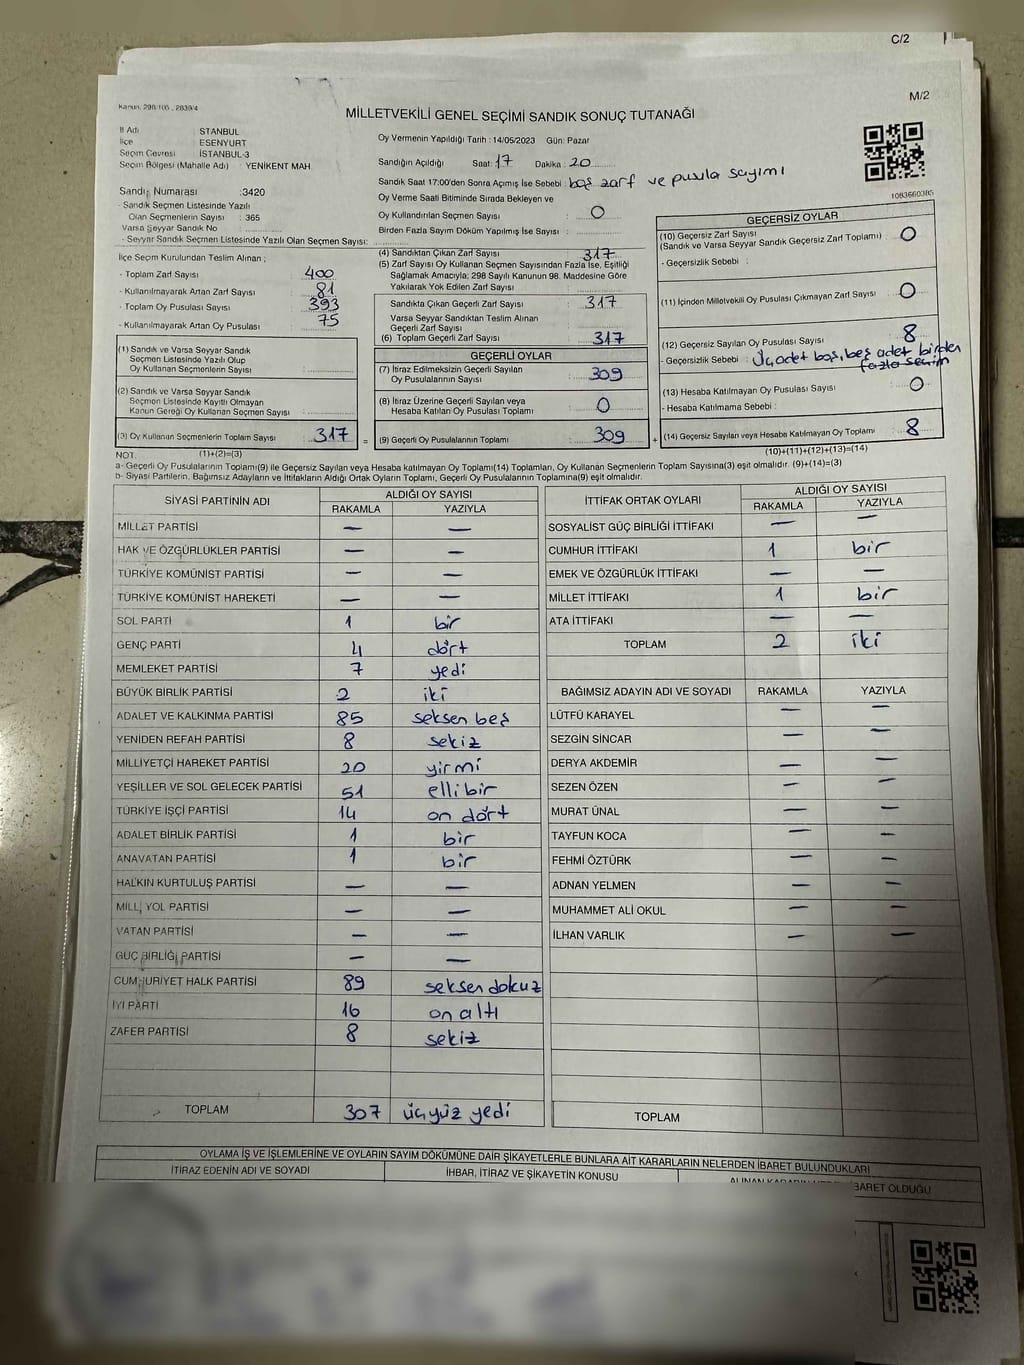 C/2
M/2
Kanun, 298/105, 2839/4
MİLLETVEKİLİ GENEL SEÇİMİ SANDIK SONUÇ TUTANAĞI
İl Adı STANBUL
İlçe ESENYURT
Seçim Çevresi İSTANBUL-3
Seçim Bölgesi (Mahalle Adı) : YENİKENT MAH.
Sandı Numarası :3420
- Sandık Seçmen Listesinde Yazılı
Olan Seçmenlerin Sayısı : 365
Varsa Seyyar Sandık No
- Seyyar Sandık Seçmen Listesinde Yazılı Olan Seçmen Sayısı:
Oy Vermenin Yapıldığı Tarih : 14/05/2023 Gün: Pazar
Sandığın Açıldığı Saat: 17 Dakika : 20
Sandık Saat 17:00'den Sonra Açılmış İse Sebebi : boş zarf ve pusula sayımı
Oy Verme Saati Bitiminde Sırada Bekleyen ve
Oy Kullandırılan Seçmen Sayısı : 0
Birden Fazla Sayım Döküm Yapılmış İse Sayısı :
1083660385
İlçe Seçim Kurulundan Teslim Alınan ;
- Toplam Zarf Sayısı : 400
- Kullanılmayarak Artan Zarf Sayısı : 81
- Toplam Oy Pusulası Sayısı : 393
- Kullanılmayarak Artan Oy Pusulası : 75
(1) Sandık ve Varsa Seyyar Sandık
Seçmen Listesinde Yazılı Olup
Oy Kullanan Seçmenlerin Sayısı :
(2) Sandık ve Varsa Seyyar Sandık
Seçmen Listesinde Kayıtlı Olmayan
Kanun Gereği Oy Kullanan Seçmen Sayısı :
(3) Oy Kullanan Seçmenlerin Toplam Sayısı : 317 =
NOT. (1)+(2)=(3)
(4) Sandıktan Çıkan Zarf Sayısı : 317
(5) Zarf Sayısı Oy Kullanan Seçmen Sayısından Fazla İse, Eşitliği
Sağlamak Amacıyla; 298 Sayılı Kanunun 98. Maddesine Göre
Yakılarak Yok Edilen Zarf Sayısı :
Sandıkta Çıkan Geçerli Zarf Sayısı : 317
Varsa Seyyar Sandıktan Teslim Alınan
Geçerli Zarf Sayısı
(6) Toplam Geçerli Zarf Sayısı : 317
GEÇERLİ OYLAR
(7) İtiraz Edilmeksizin Geçerli Sayılan
Oy Pusulalarının Sayısı : 309
(8) İtiraz Üzerine Geçerli Sayılan veya
Hesaba Katılan Oy Pusulası Toplamı : 0
(9) Geçerli Oy Pusulalarının Toplamı : 309 +
GEÇERSİZ OYLAR
(10) Geçersiz Zarf Sayısı
(Sandık ve Varsa Seyyar Sandık Geçersiz Zarf Toplamı) : 0
- Geçersizlik Sebebi :
(11) İçinden Milletvekili Oy Pusulası Çıkmayan Zarf Sayısı : 0
(12) Geçersiz Sayılan Oy Pusulası Sayısı : 8
- Geçersizlik Sebebi : Üç adet boş, beş adet birden
fazla seçim
(13) Hesaba Katılmayan Oy Pusulası Sayısı : 0
- Hesaba Katılmama Sebebi :
(14) Geçersiz Sayılan veya Hesaba Katılmayan Oy Toplamı : 8
(10)+(11)+(12)+(13)=(14)
a- Geçerli Oy Pusulalarının Toplamı(9) ile Geçersiz Sayılan veya Hesaba Katılmayan Oy Toplamı(14) Toplamları, Oy Kullanan Seçmenlerin Toplam Sayısına(3) eşit olmalıdır. (9)+(14)=(3)
b- Siyasi Partilerin, Bağımsız Adayların ve İttifakların Aldığı Ortak Oyların Toplamı, Geçerli Oy Pusulalarının Toplamına(9) eşit olmalıdır.
SİYASİ PARTİNİN ADI ALDIĞI OY SAYISI
RAKAMLA YAZIYLA
MİLLET PARTİSİ — —
HAK VE ÖZGÜRLÜKLER PARTİSİ — —
TÜRKİYE KOMÜNİST PARTİSİ — —
TÜRKİYE KOMÜNİST HAREKETİ — —
SOL PARTİ 1 bir
GENÇ PARTİ 4 dört
MEMLEKET PARTİSİ 7 yedi
BÜYÜK BİRLİK PARTİSİ 2 iki
ADALET VE KALKINMA PARTİSİ 85 seksen beş
YENİDEN REFAH PARTİSİ 8 sekiz
MİLLİYETÇİ HAREKET PARTİSİ 20 yirmi
YEŞİLLER VE SOL GELECEK PARTİSİ 51 elli bir
TÜRKİYE İŞÇİ PARTİSİ 14 on dört
ADALET BİRLİK PARTİSİ 1 bir
ANAVATAN PARTİSİ 1 bir
HALKIN KURTULUŞ PARTİSİ — —
MİLLİ YOL PARTİSİ — —
VATAN PARTİSİ — —
GÜÇ BİRLİĞİ PARTİSİ — —
CUMHURİYET HALK PARTİSİ 89 seksen dokuz
İYİ PARTİ 16 on altı
ZAFER PARTİSİ 8 sekiz
TOPLAM 307 üçyüz yedi
İTTİFAK ORTAK OYLARI ALDIĞI OY SAYISI
RAKAMLA YAZIYLA
SOSYALİST GÜÇ BİRLİĞİ İTTİFAKI — —
CUMHUR İTTİFAKI 1 bir
EMEK VE ÖZGÜRLÜK İTTİFAKI — —
MİLLET İTTİFAKI 1 bir
ATA İTTİFAKI — —
TOPLAM 2 iki
BAĞIMSIZ ADAYIN ADI VE SOYADI RAKAMLA YAZIYLA
LÜTFÜ KARAYEL — —
SEZGİN SİNCAR — —
DERYA AKDEMİR — —
SEZEN ÖZEN — —
MURAT ÜNAL — —
TAYFUN KOCA — —
FEHMİ ÖZTÜRK — —
ADNAN YELMEN — —
MUHAMMET ALİ OKUL — —
İLHAN VARLIK — —
TOPLAM
OYLAMA İŞ VE İŞLEMLERİNE VE OYLARIN SAYIM DÖKÜMÜNE DAİR ŞİKAYETLERLE BUNLARA AİT KARARLARIN NELERDEN İBARET BULUNDUKLARI
İTİRAZ EDENİN ADI VE SOYADI İHBAR, İTİRAZ VE ŞİKAYETİN KONUSU BARET OLDUĞU